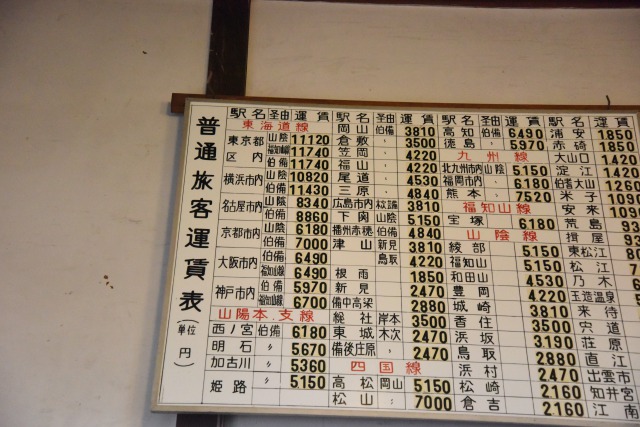 普通旅客運賃表
(単位 円)
駅名 经由 運賃
東海道線
東京都区内 山陰 11120
福知山線 11740
伯備 11740
横浜市内 山陰 10820
伯備 11430
名古屋市内 山陰 8340
伯備 8860
京都市内 山陰 6180
伯備 7000
大阪市内 伯備 6490
福知山線 6490
神戸市内 伯備 5970
福知山線 6700
山陽本、支線
西ノ宮 伯備 6180
明石 〃 5670
加古川 〃 5360
姫路 〃 5150
駅名 经由 運賃
岡山 伯備 3810
倉敷 〃 3500
笠岡 〃 4220
福山 〃 4220
尾道 〃 4530
三原 〃 4840
広島市内 木次 3810
下関 山陰 5150
播州赤穂 伯備 4840
津山 新見 3810
鳥取 4220
根雨 1850
新見 2470
備中高梁 2880
総社 岸本 3500
東城 木次 2470
備後庄原 〃 2470
四国線
高松 岡山 5150
松山 〃 7000
駅名 经由 運賃
高知 伯備 6490
徳島 〃 5970
九州線
北九州市内 山陰 5150
福岡市内 〃 6180
熊本 〃 7520
福知山線
宝塚 6180
山陰線
綾部 5150
福知山 5150
和田山 4530
豊岡 4220
城崎 3810
香住 3500
浜坂 3190
鳥取 2880
浜村 2470
松崎 2160
倉吉 2160
駅名 運賃
浦安 1850
赤碕 1850
大山口 1420
淀江 1420
伯耆大山 1260
米子 1090
安来 1090
荒島
揖屋
東松江
松江
乃木
玉造温泉
来待
宍道
荘原
直江
出雲市
知井宮
江南